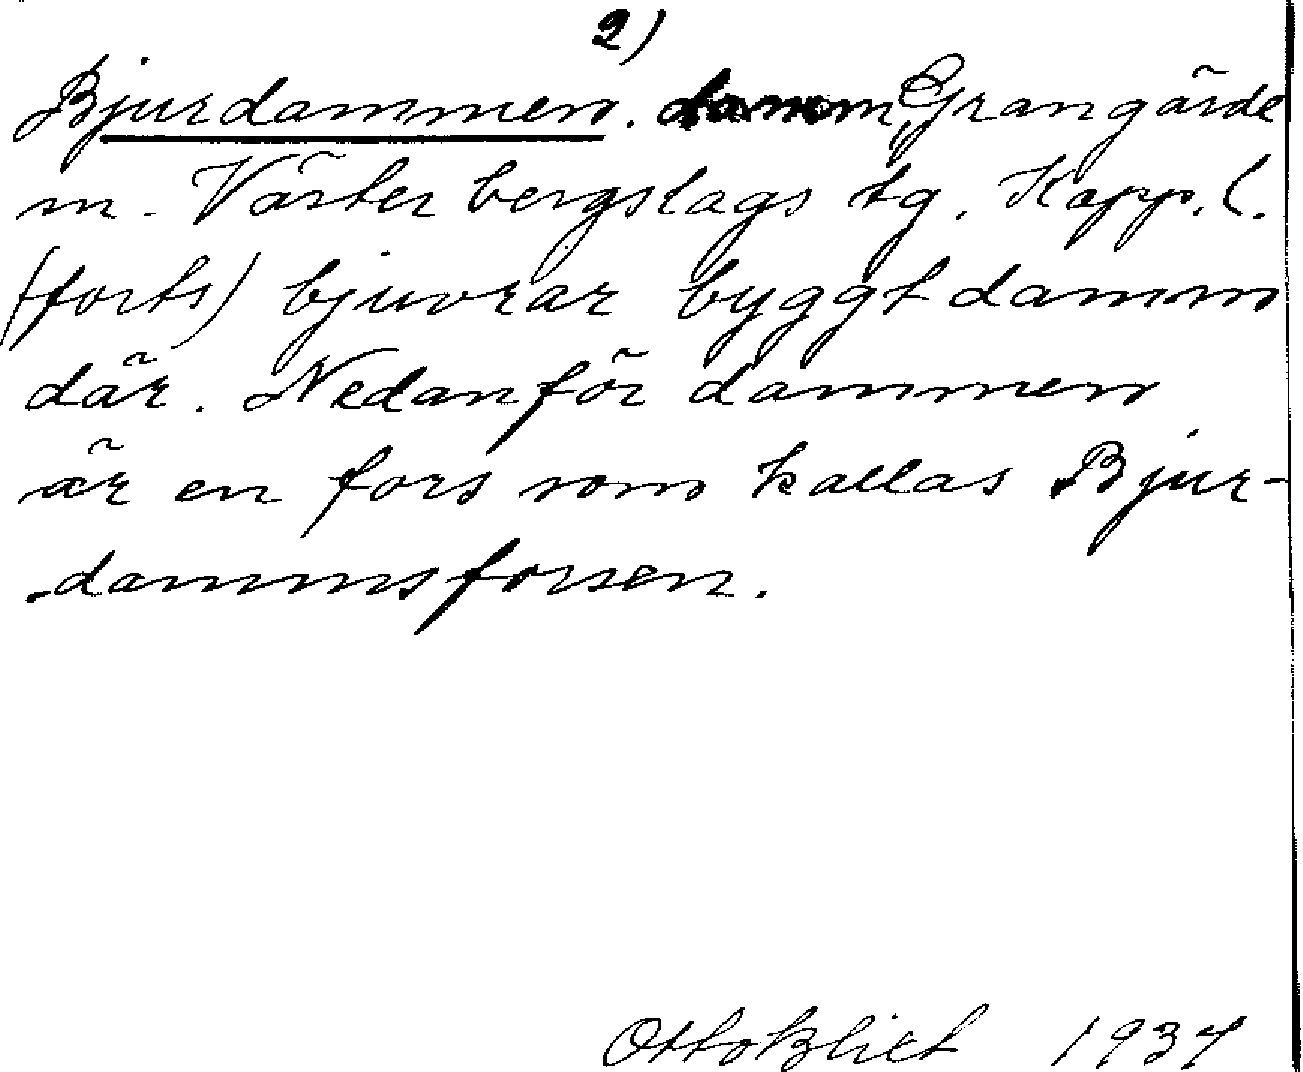 2)
Bjurdammen. damm, Grangärde
sn. Väster bergslags tg. Kopp. l.
(forts) bjuvrar byggt damm
där. Nedanför dammen
är en fors som kallas Bjur-
dammsforsen.
Otto Blixt 1934